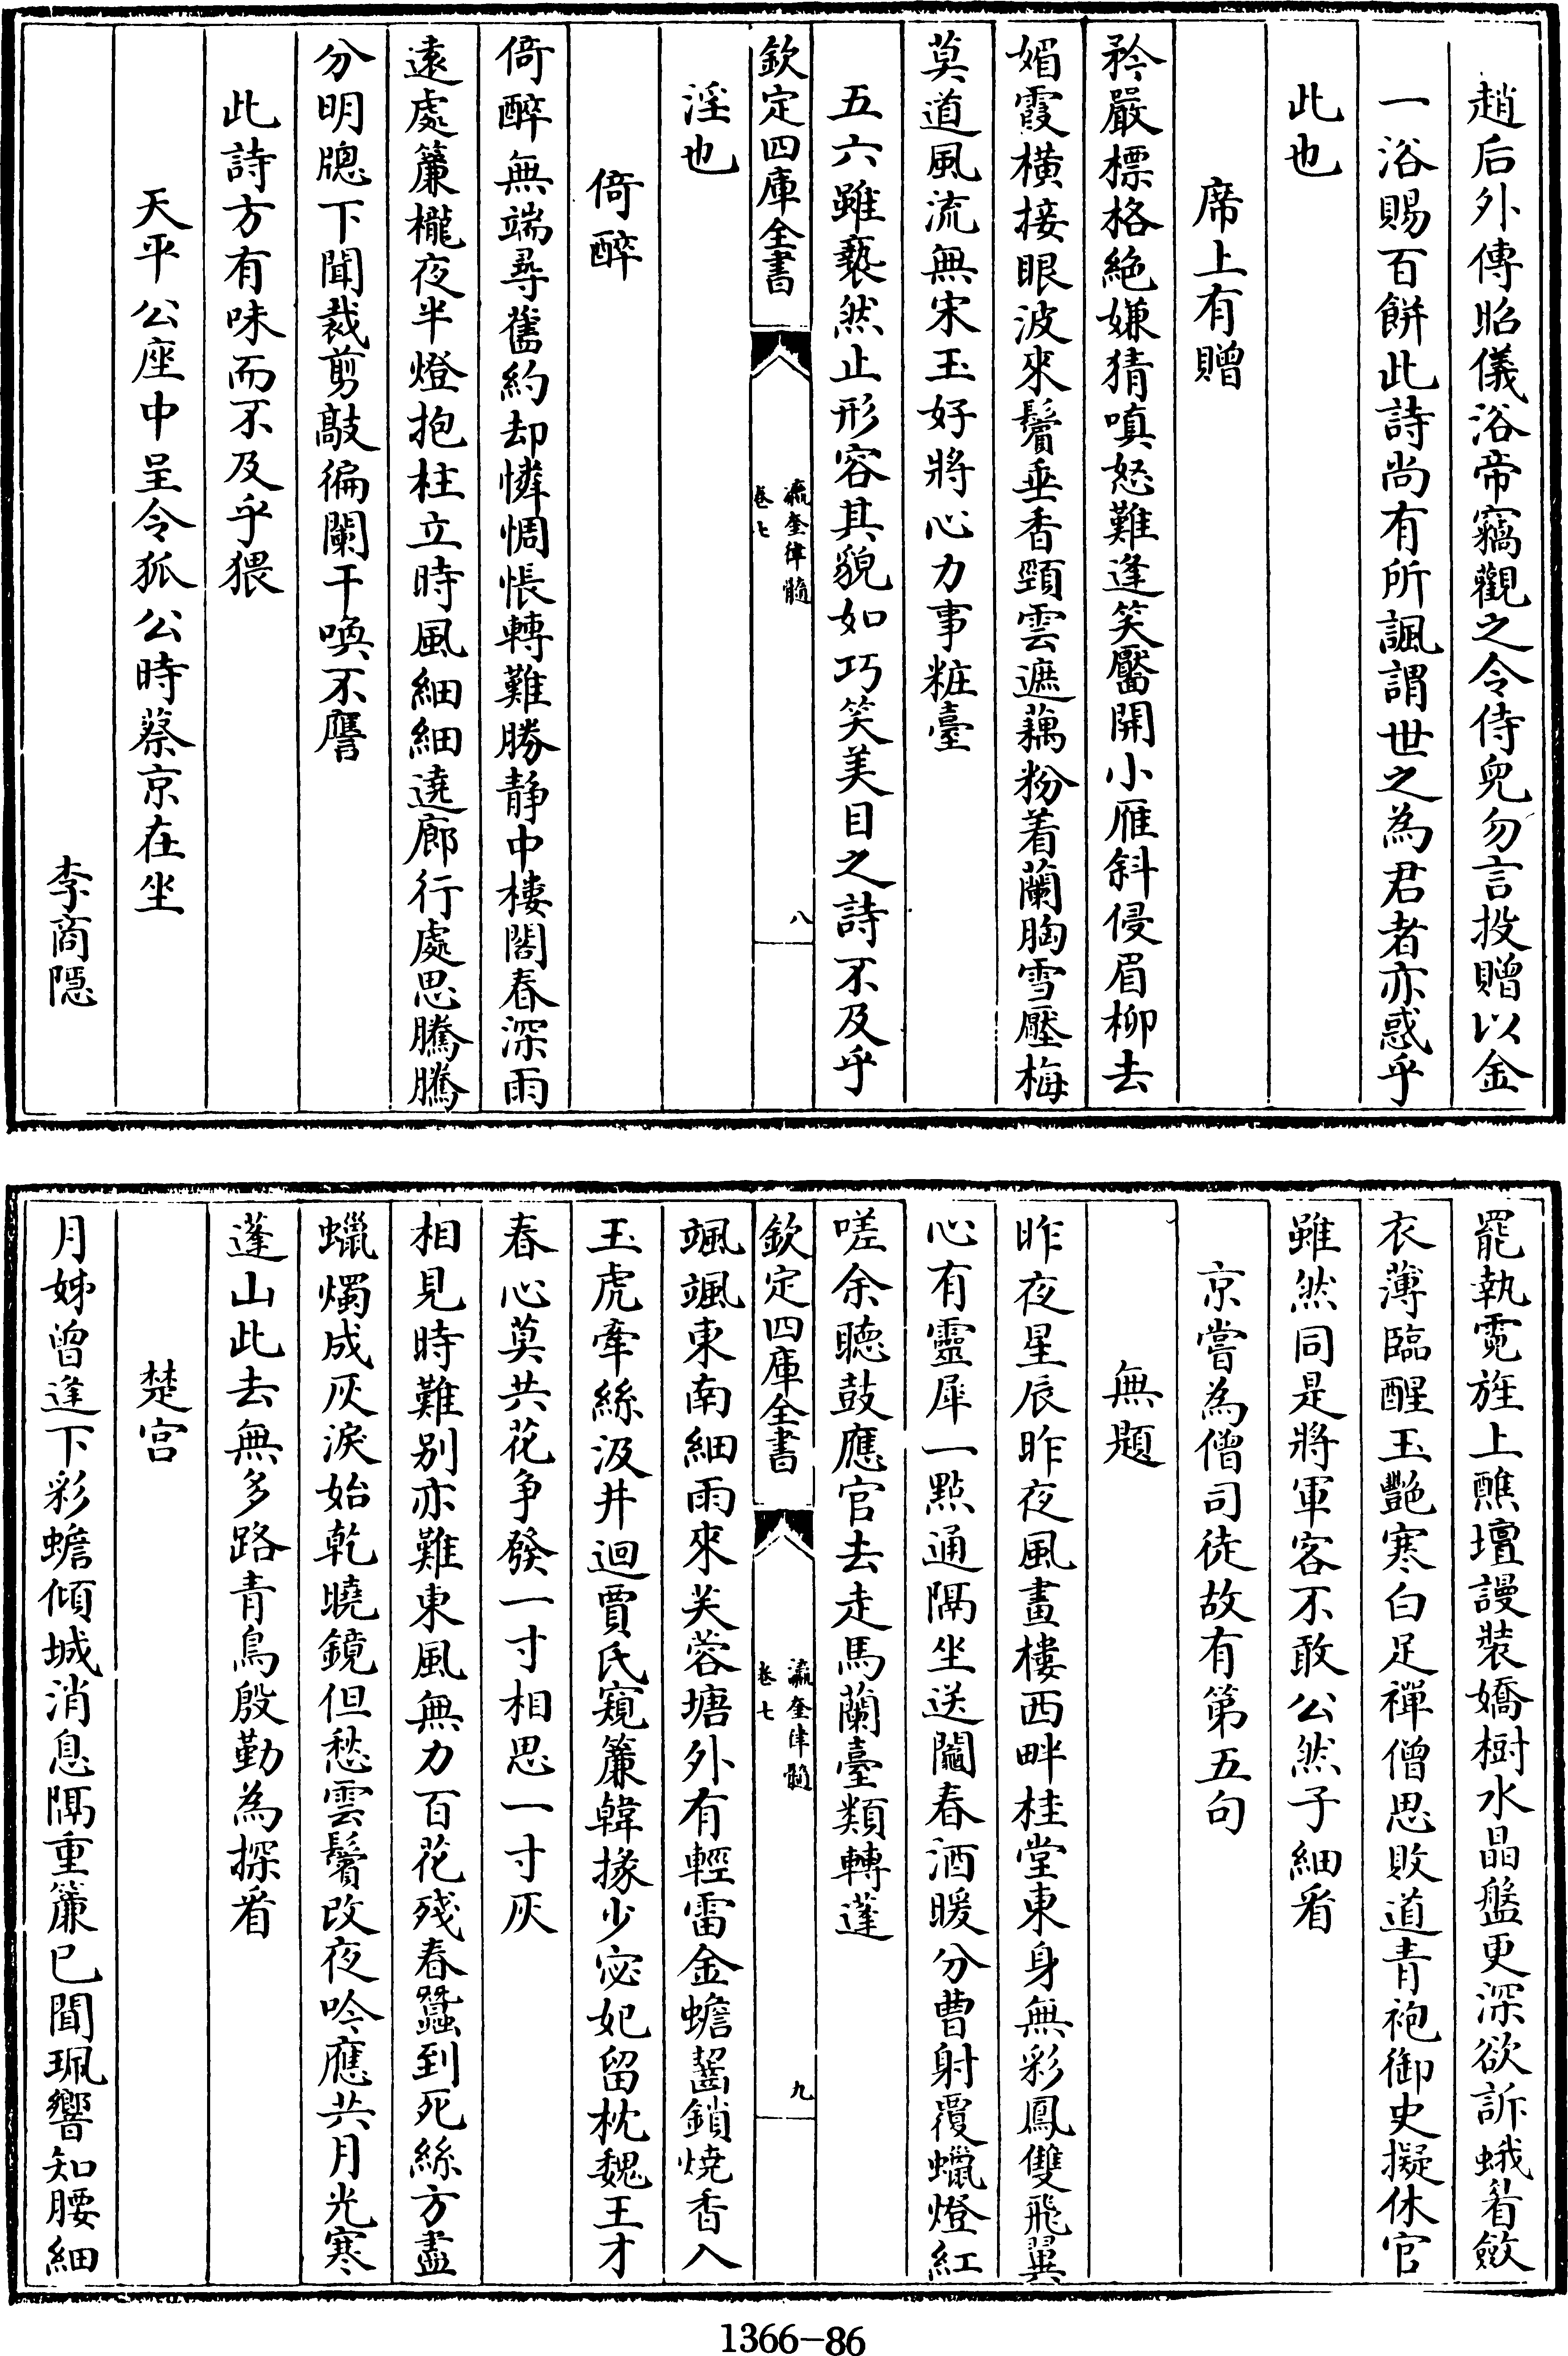 趙后外傳昭儀浴帝竊觀之令侍兒勿言投贈以金
一浴賜百餅此詩尚有所諷謂世之為君者亦惑乎
此也
席上有贈
矜嚴標格絶嫌猜嗔怒難逢笑靨開小雁斜侵眉柳去
媚霞橫接眼波來鬢垂香頸雲遮藕粉着蘭胸雪壓梅
莫道風流無宋玉好將心力事粧臺
五六雖褻然止形容其貌如巧笑美目之詩不及乎
欽定四庫全書
瀛奎律髓
卷七
八
淫也
倚醉
倚醉無端尋舊約却憐惆悵轉難勝静中樓閣春深雨
遠處簾櫳夜半燈抱柱立時風細細遶廊行處思騰騰
分明牎下聞裁剪敲徧闌干喚不譍
此詩方有味而不及乎猥
天平公座中呈令狐公時蔡京在坐
李商隱
罷執霓旌上醮壇謾裝嬌樹水晶盤更深欲訴蛾眉斂
衣薄臨醒玉艷寒白足禪僧思敗道青袍御史擬休官
雖然同是將軍客不敢公然子細看
京嘗為僧司徒故有第五句
無題
昨夜星辰昨夜風畫樓西畔桂堂東身無彩鳳雙飛翼
心有靈犀一點通隔坐送鬮春酒暖分曹射覆蠟燈紅
嗟余聽鼓應官去走馬蘭臺類轉蓬
欽定四庫全書
瀛奎律髓
卷七
九
颯颯東南細雨來芙蓉塘外有輕雷金蟾齧鎖燒香入
玉虎牽絲汲井迴賈氏窺簾韓掾少宓妃留枕魏王才
春心莫共花争發一寸相思一寸灰
相見時難别亦難東風無力百花殘春蠶到死絲方盡
蠟燭成灰淚始乾曉鏡但愁雲鬢改夜吟應共月光寒
蓬山此去無多路青鳥殷勤為探看
楚宫
月姊曾逢下彩蟾傾城消息隔重簾已聞珮響知腰細
1366-86